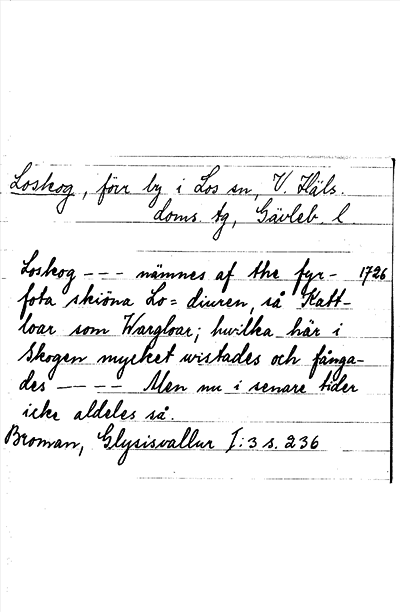 Loskog, förr by i Los sn, V. Häls.
doms. tg, Gävleb. l.
Loskog --- nämnes af the fyr- 1726
fota skiöna Lo= diuren, så Katt-
loar som Wargloar; hwilka här i
Skogen mycket wistades och fånga-
des ---- Men nu i senare tider
icke aldeles så.
Broman, Glysisvallur I:3 s. 236